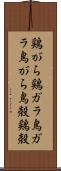 鶏がら鶏ガラ鳥ガ
ラ鳥がら鳥殻鶏殻